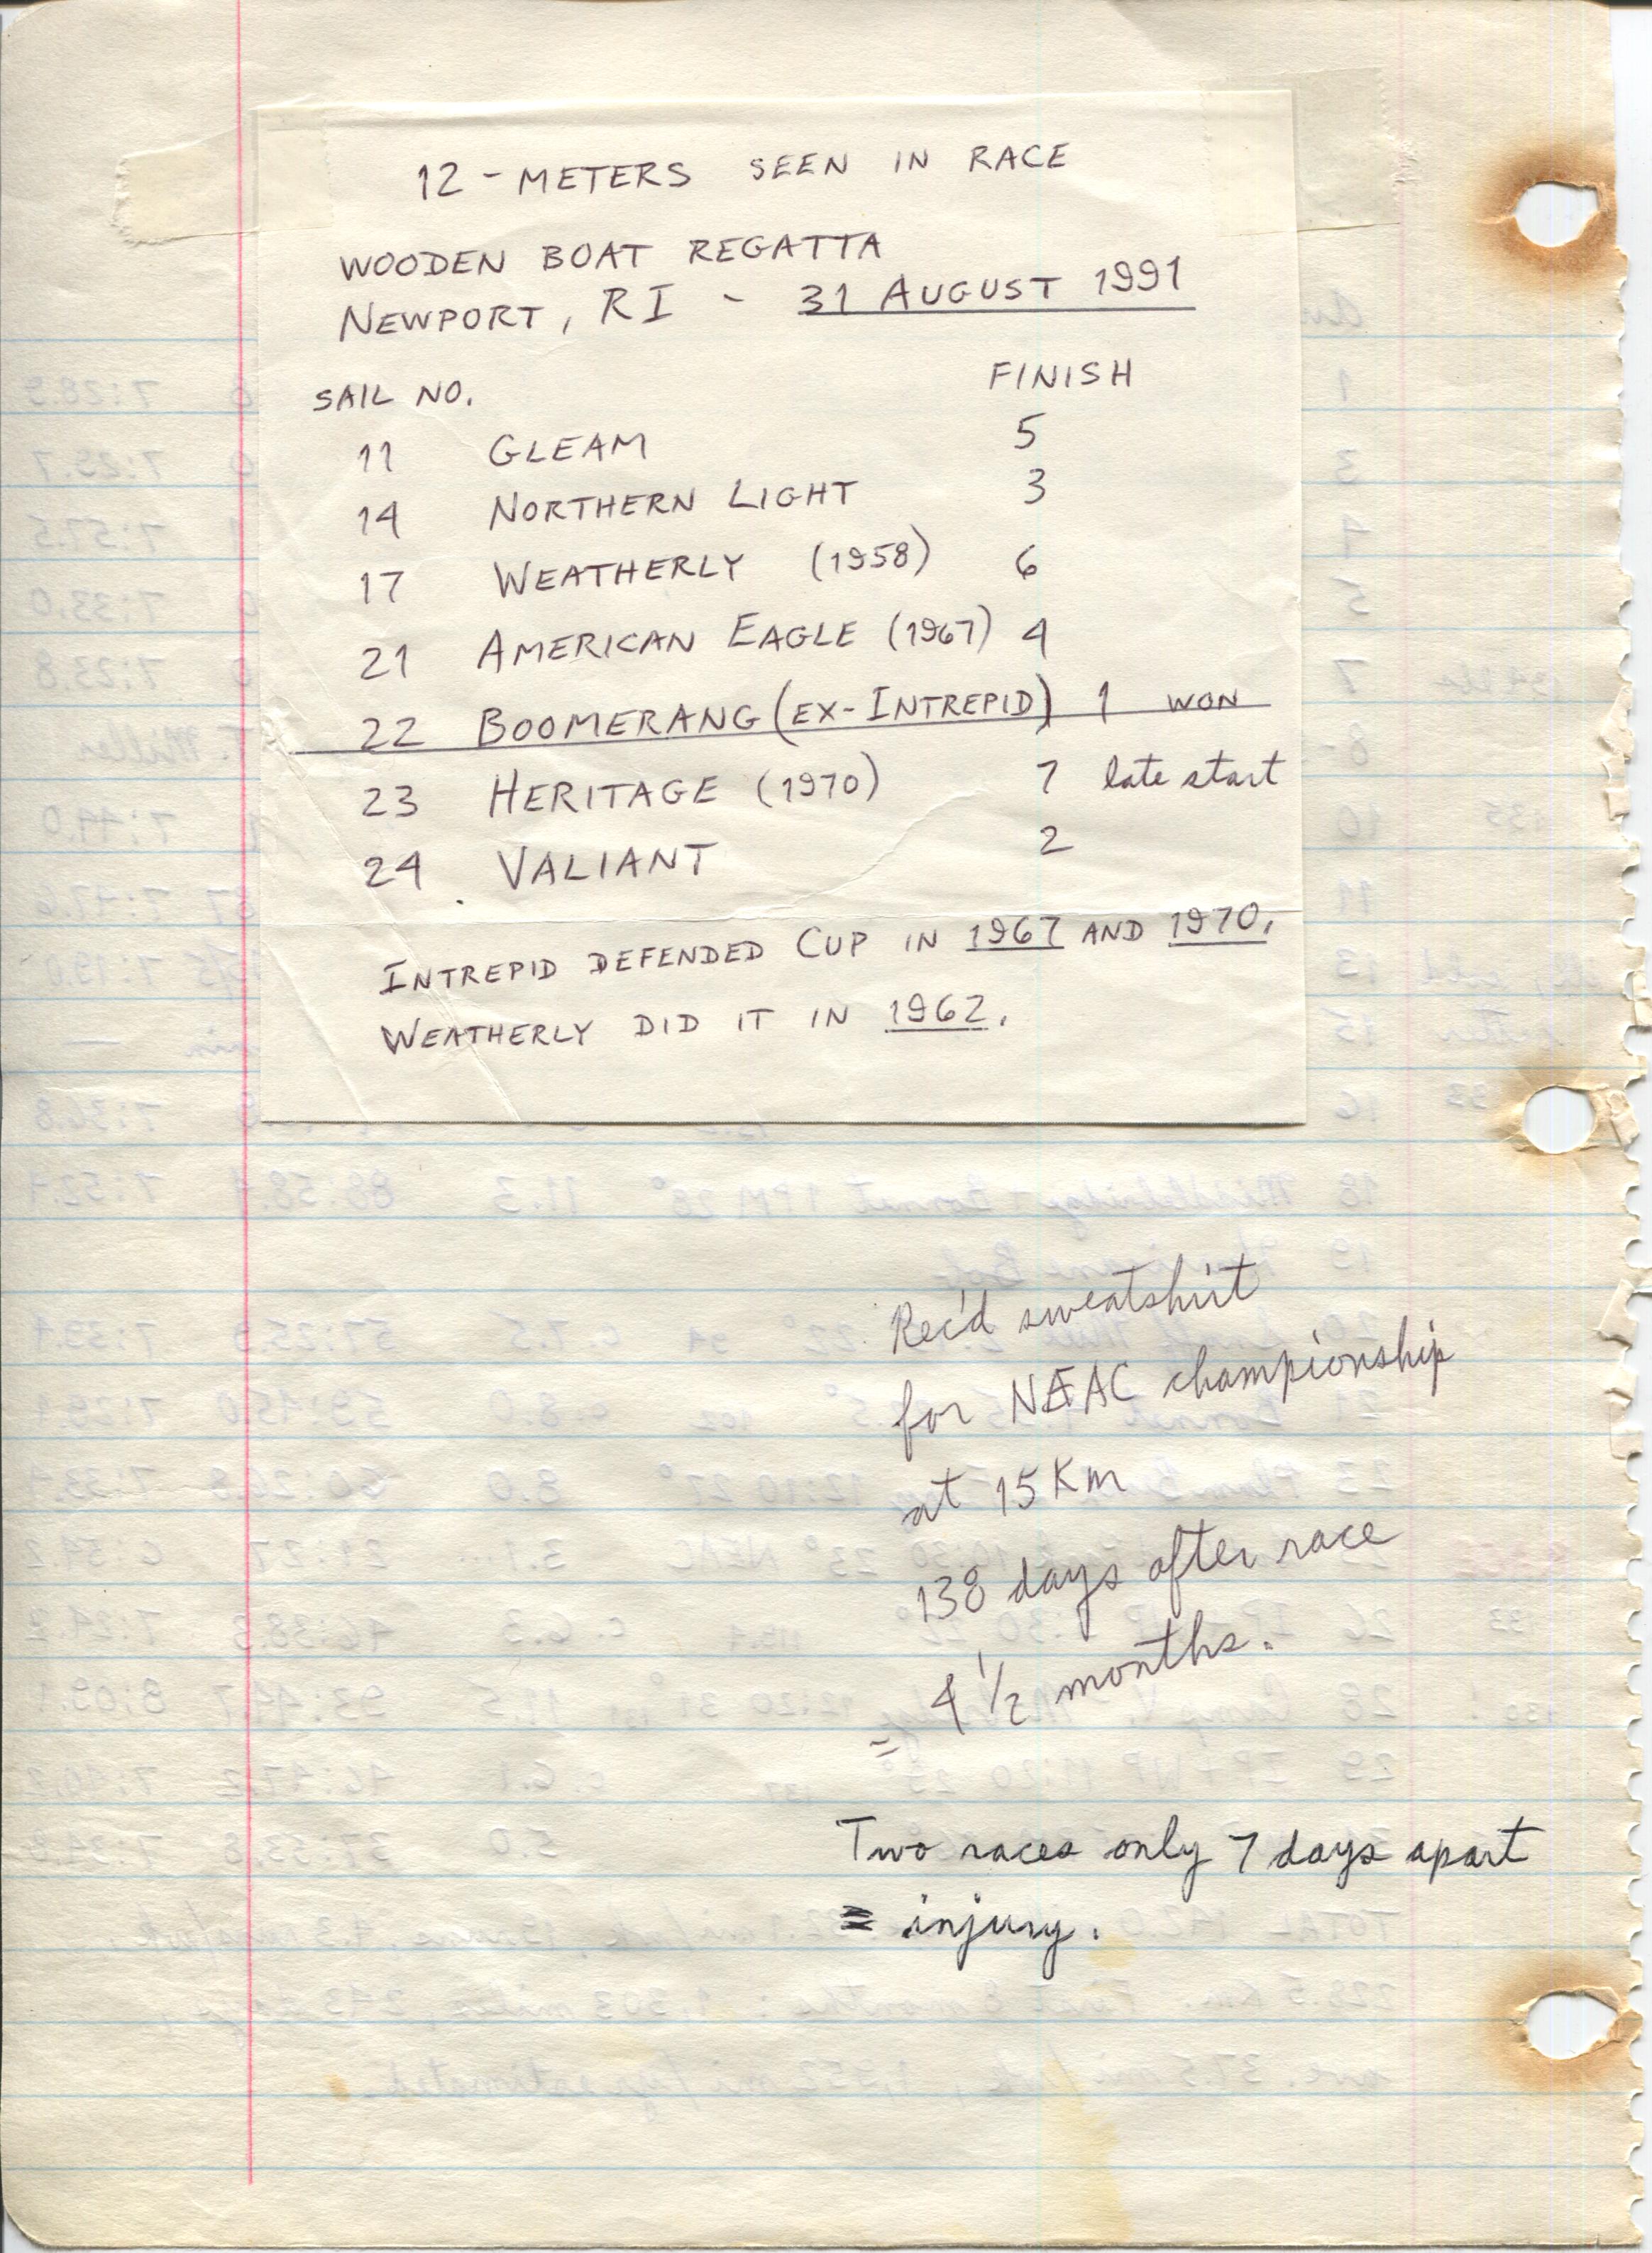 12-METERS SEEN IN RACE
WOODEN BOAT REGATTA
NEWPORT, RI - 31 AUGUST 1991
SAIL NO. FINISH
11 GLEAM 5
14 NORTHERN LIGHT 3
17 WEATHERLY (1958) 6
21 AMERICAN EAGLE (1967) 4
22 BOOMERANG (EX-INTREPID) 1 WON
23 HERITAGE (1970) 7 late start
24 VALIANT 2
INTREPID DEFENDED CUP IN 1967 AND 1970.
WEATHERLY DID IT IN 1962.
Rec'd sweatshirt
for NEAC championship
at 15 Km
138 days after race
= 4 1/2 months.
Two races only 7 days apart
= injury.